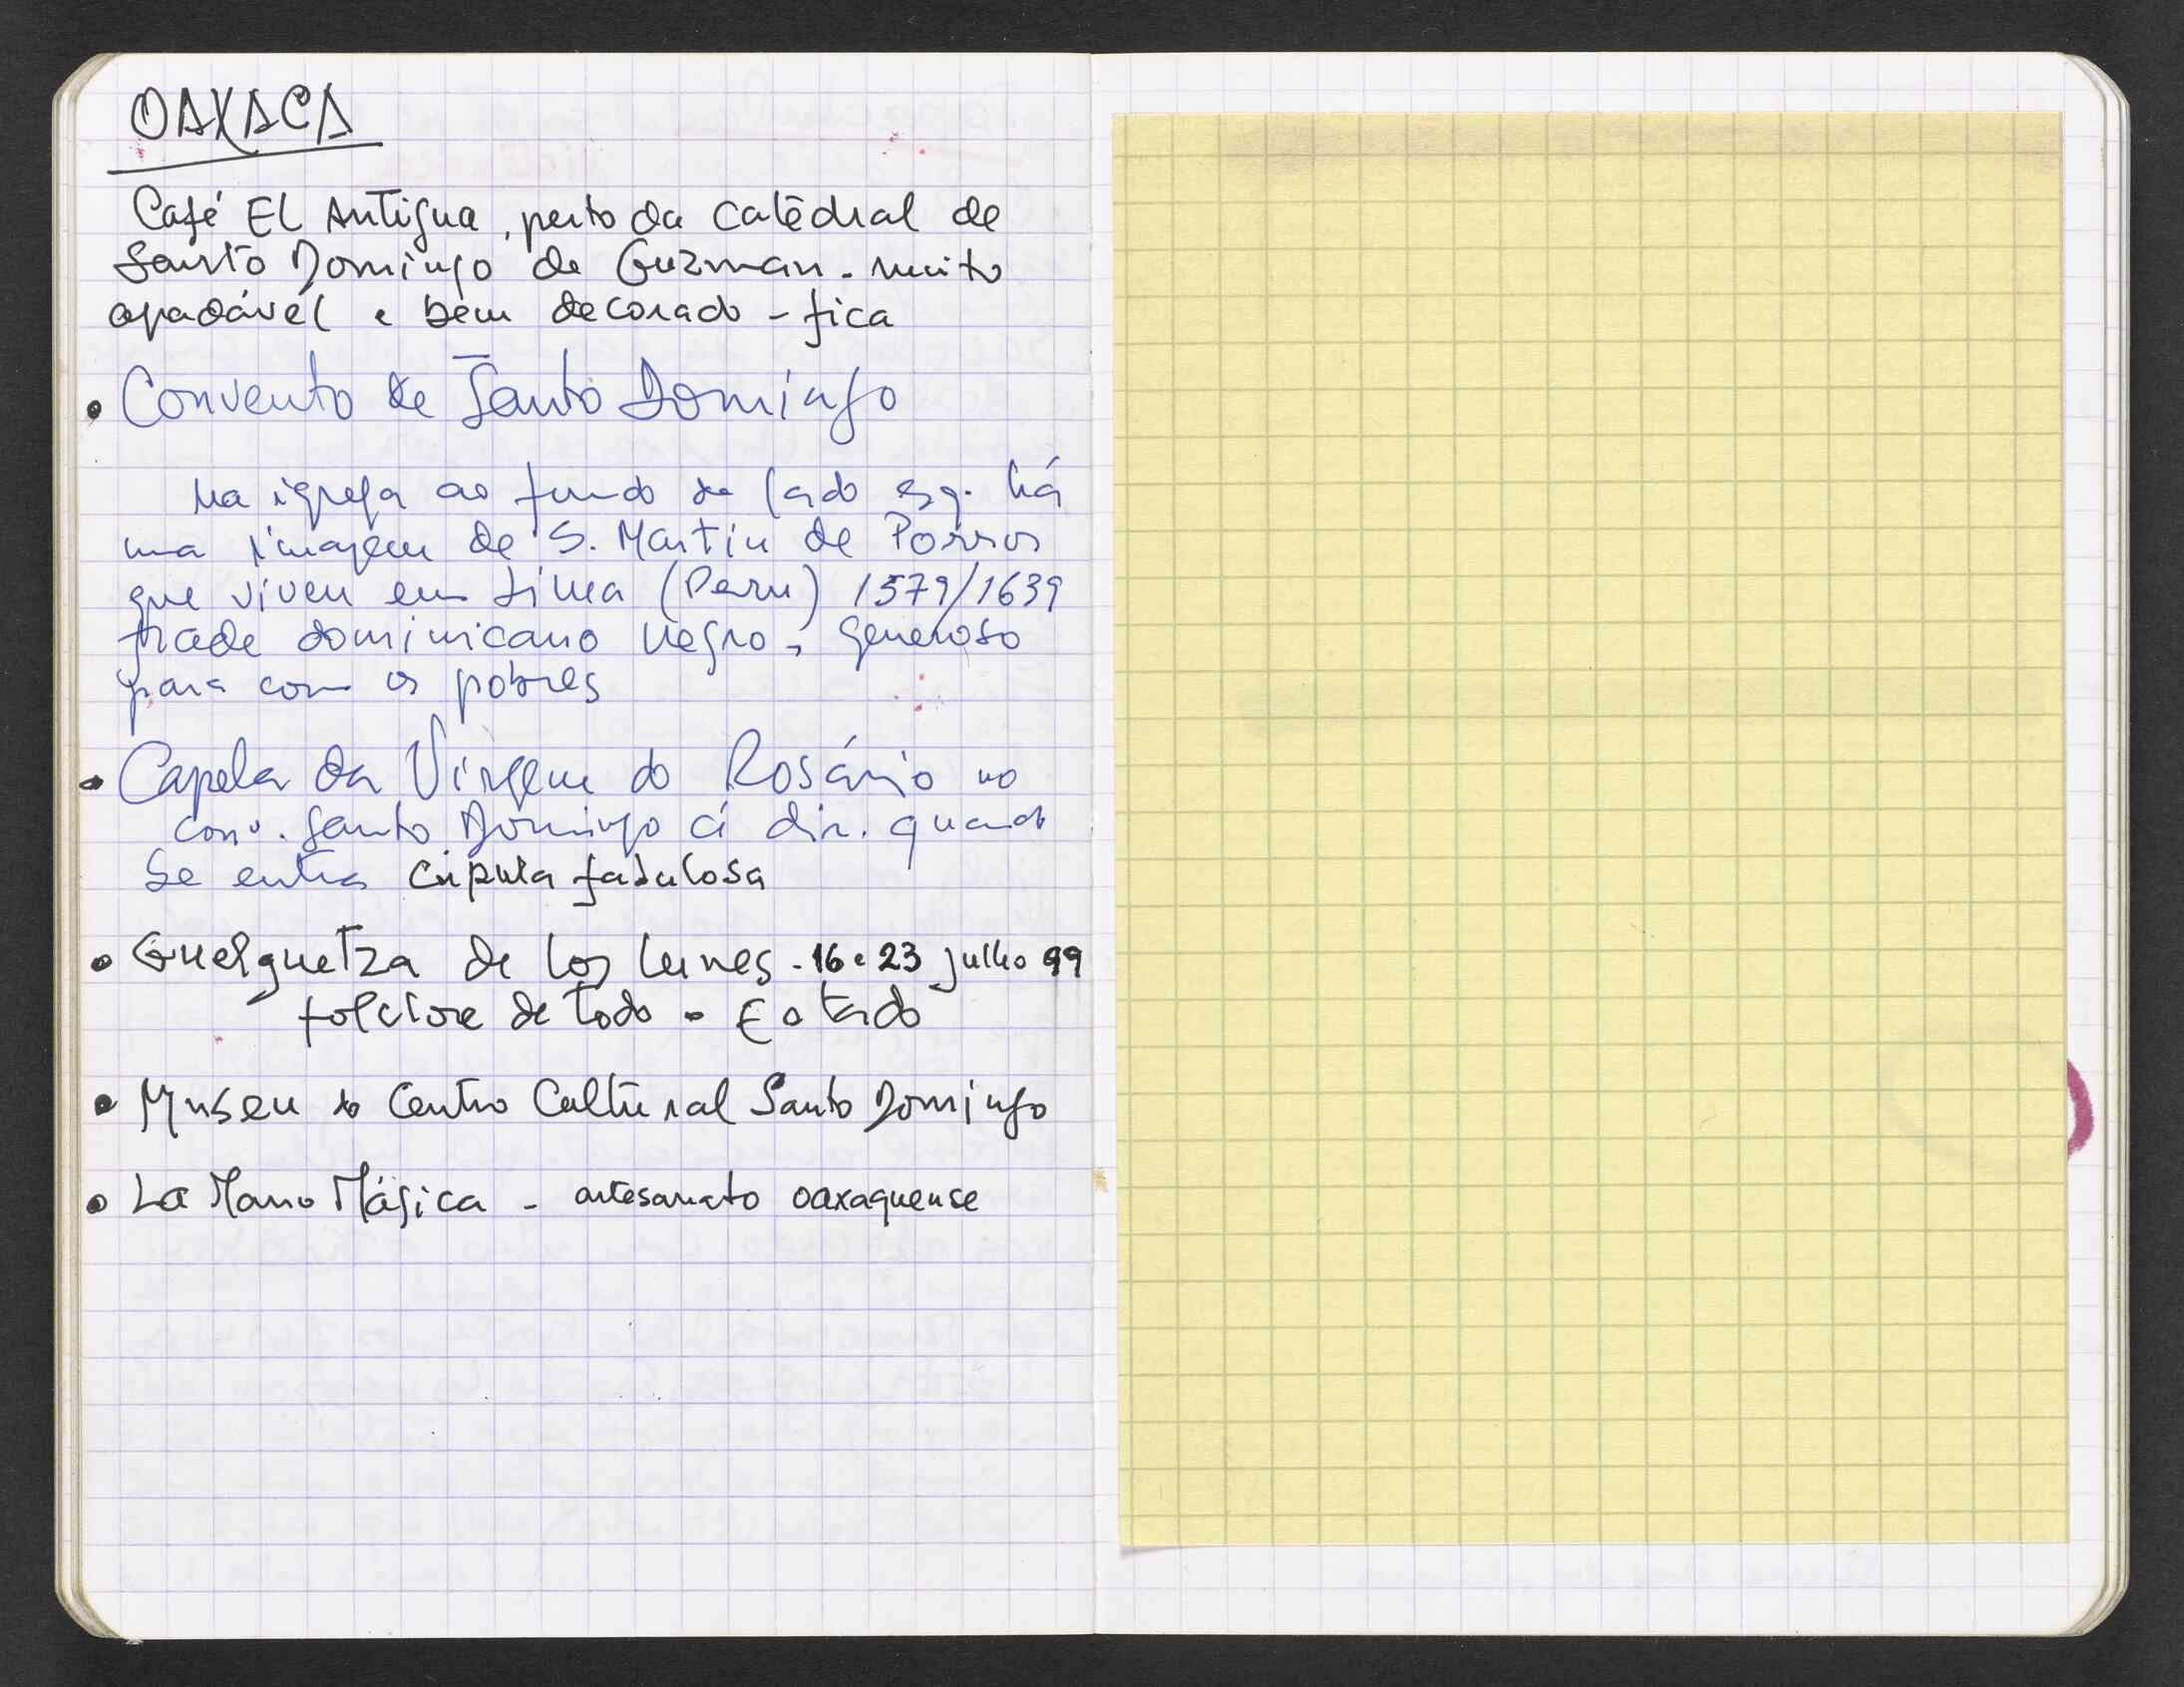 OAXACA
Café El Antigua, perto da catedral de
Santo Domingo de Guzman - muito
agradável e bem decorado - fica
• Convento de Santo Domingo
Na igreja ao fundo do lado esq. há
uma imagem de S. Martin de Porros
que viveu em Lima (Peru) 1579/1639
frade dominicano negro, generoso
para com os pobres
• Capela da Virgem do Rosário no
conv. Santo Domingo á dir. quando
se entra cúpula fabulosa
• Guelguetza de los lunes - 16 e 23 julho 99
folclore de todo o Estado
• Museu do Centro Cultural Santo Domingo
• La Mano Mágica - artesanato oaxaquense